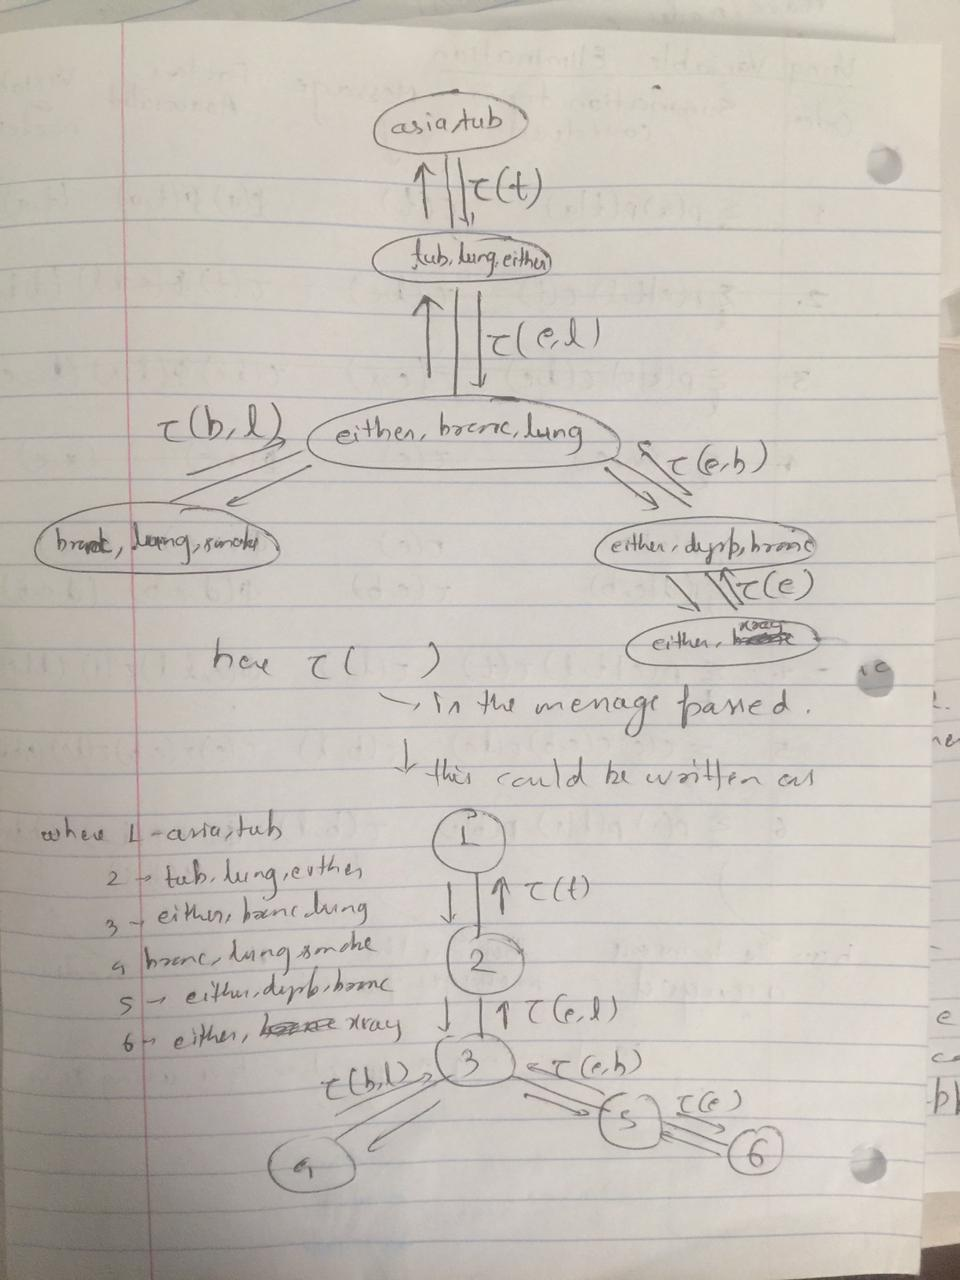 asia,tub
τ(t)
tub, lung, either
τ(e,l)
τ(b,l)
either, bronc, lung
τ(e,b)
lung, smoke
either, dysp, bronc
τ(e)
either, xray
here τ( )
→ is the message passed.
↓ this could be written as
where 1 - asia,tub
1
2 → tub, lung, either
τ(t)
3 → either, bronc, lung
4 bronc, lung, smoke
2
5 → either, dysp, bronc
τ(e,l)
6 → either, xray
3
τ(e,b)
τ(b,l)
τ(e)
5
4
6